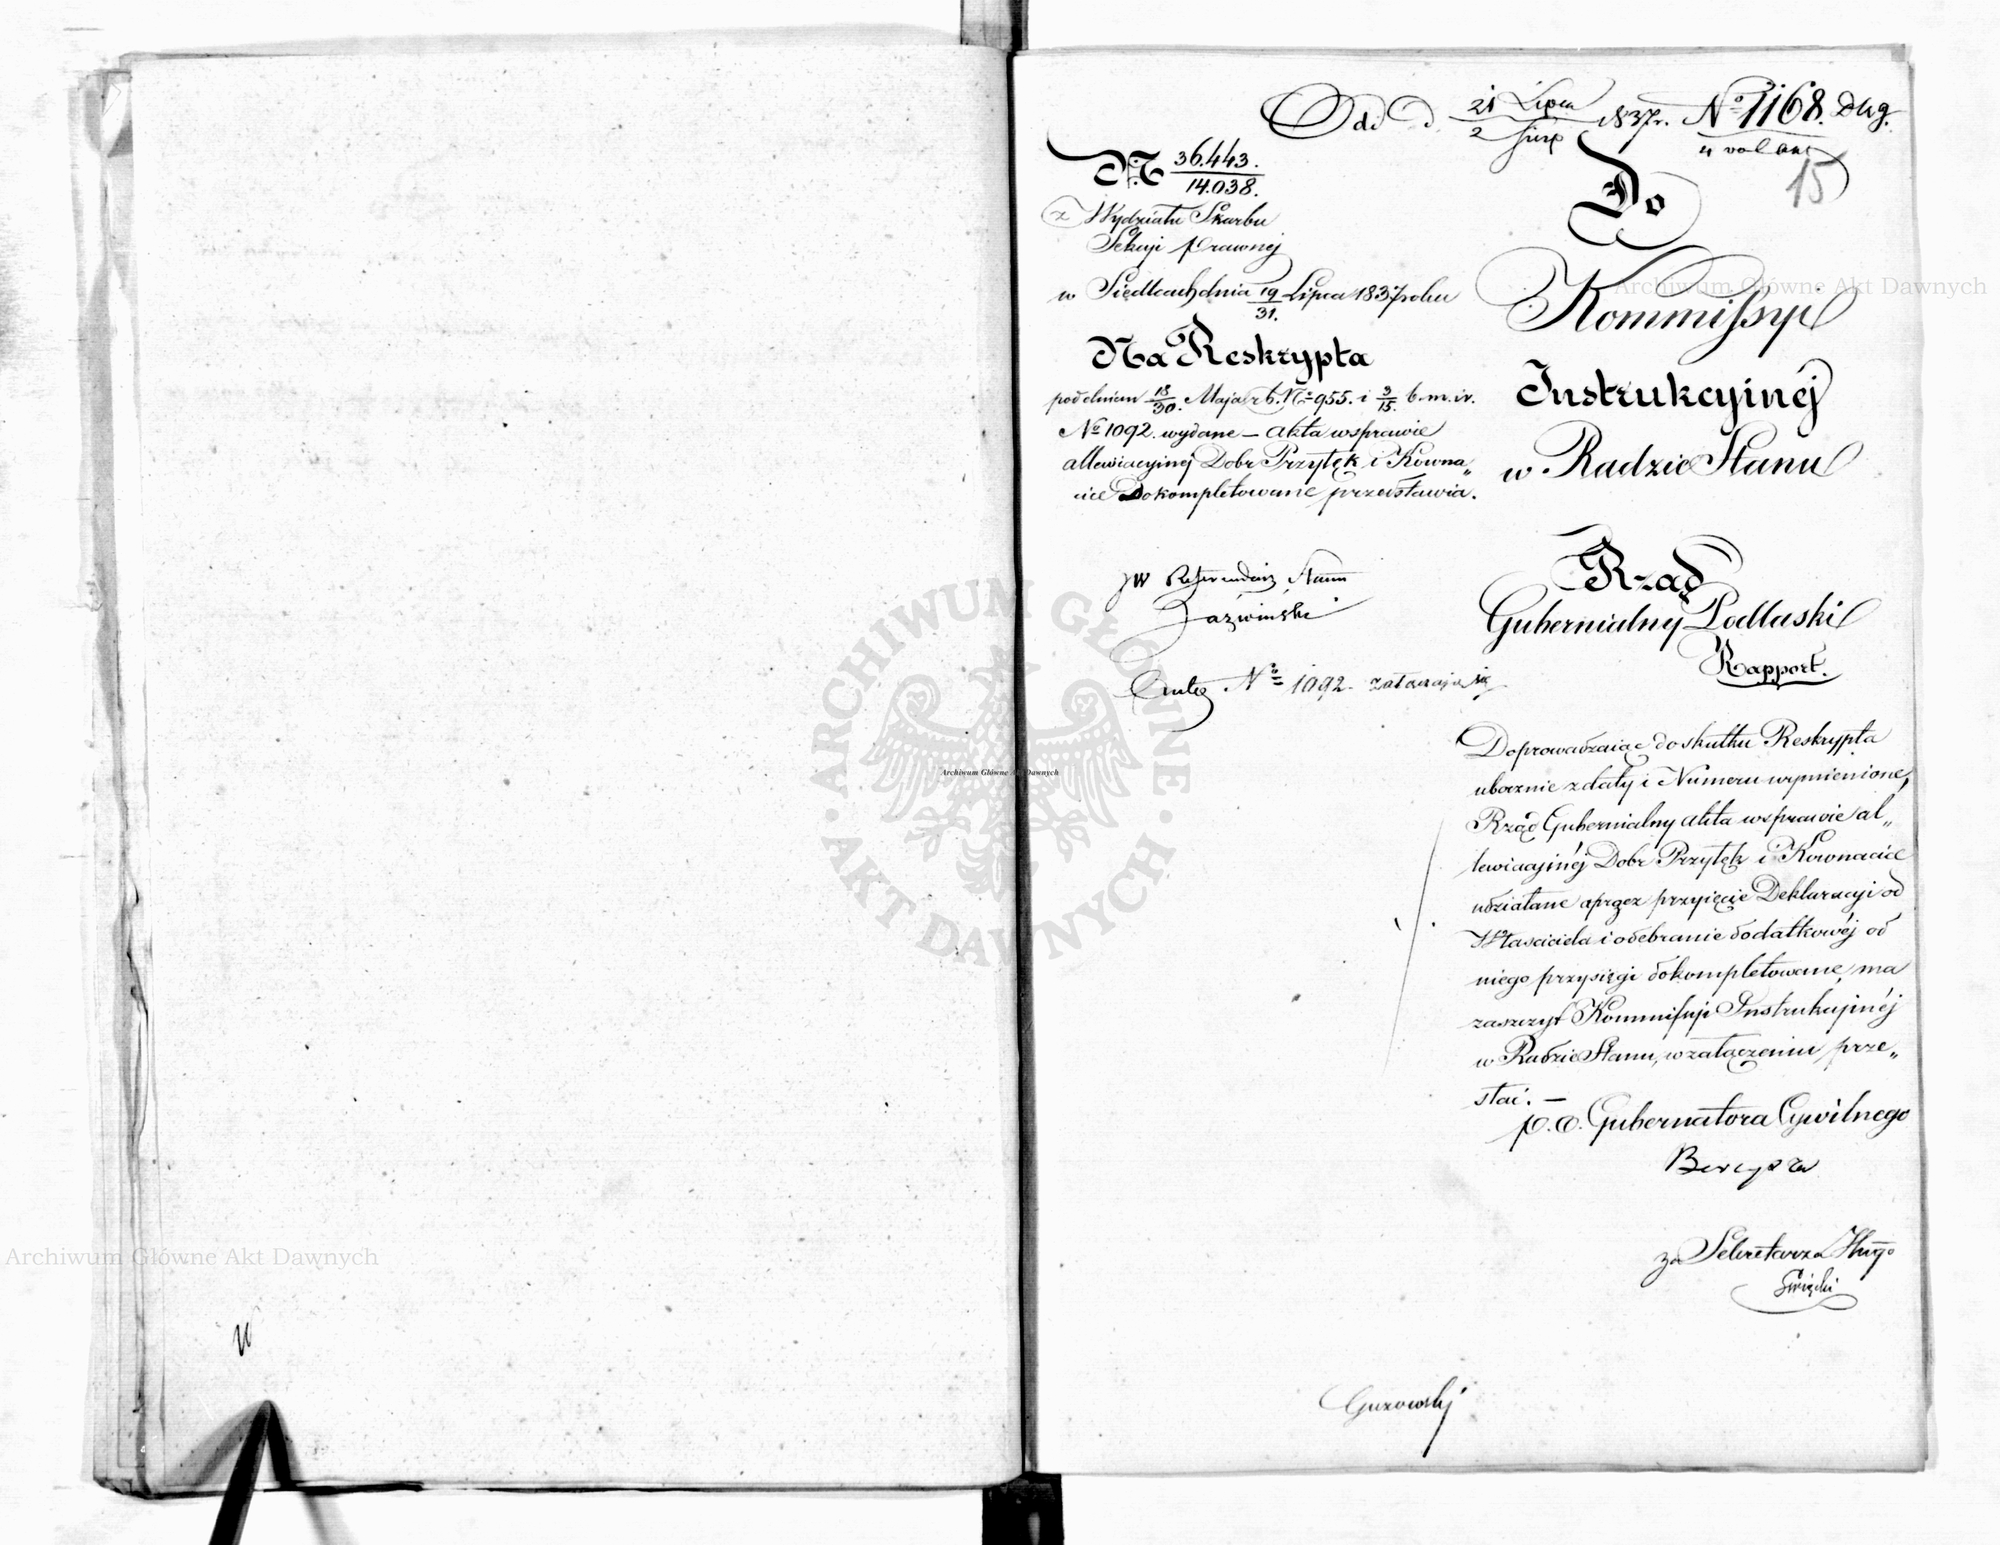 Odd d. 21 Lipca / 2 Sierp 1837r. No 1168. Dkg.
4 vol akt
15
No 36.443. / 14.038.
z Wydziału Skarbu
Sekcyi Prawnej
w Siedlcach dnia 19/31. Lipca 1837 roku
Na Reskrypta
pod dniem 18/30. Maja r.b. No 955. i 3/15. b.m. i r.
No 1092. wydane — akta wsprawie
allewiacyinej Dobr Przyłęk i Kowna„
cice Dokompletowane przedstawia.
JW Referendarz Stanu
Łaźwiński
No 1092. załatwiają się
Do
Kommissyi
Instrukcyinéj
w Radzie Stanu
Rząd
Gubernialny Podlaski
Rapport.
Doprowadzaiąc do skutku Reskrypta
ubocznie z daty i Numeru wymienione,
Rząd Gubernialny akta wsprawie al„
lewiacyinéj Dobr Przyłęk i Kownacice
udziałane a przez przyięcie Deklaracyi od
Właściciela i odebranie dodatkowéj od
niego przysięgi dokompletowane, ma
zaszczyt Kommissyi Instrukcyinéj
w Radzie Stanu, w załączeniu prze„
słać. —
p.o. Gubernatora Cywilnego
za Sekretarza Jlnego
Święcki
Gurowski
Archiwum Główne Akt Dawnych
Archiwum Główne Akt Dawnych
Archiwum Główne Akt Dawnych
ARCHIWUM GŁÓWNE · AKT DAWNYCH ·